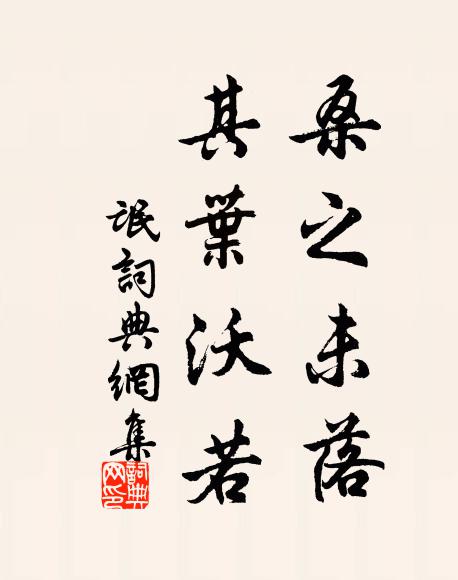 桑之未落
其葉沃若
氓詞典網集
詞典网印